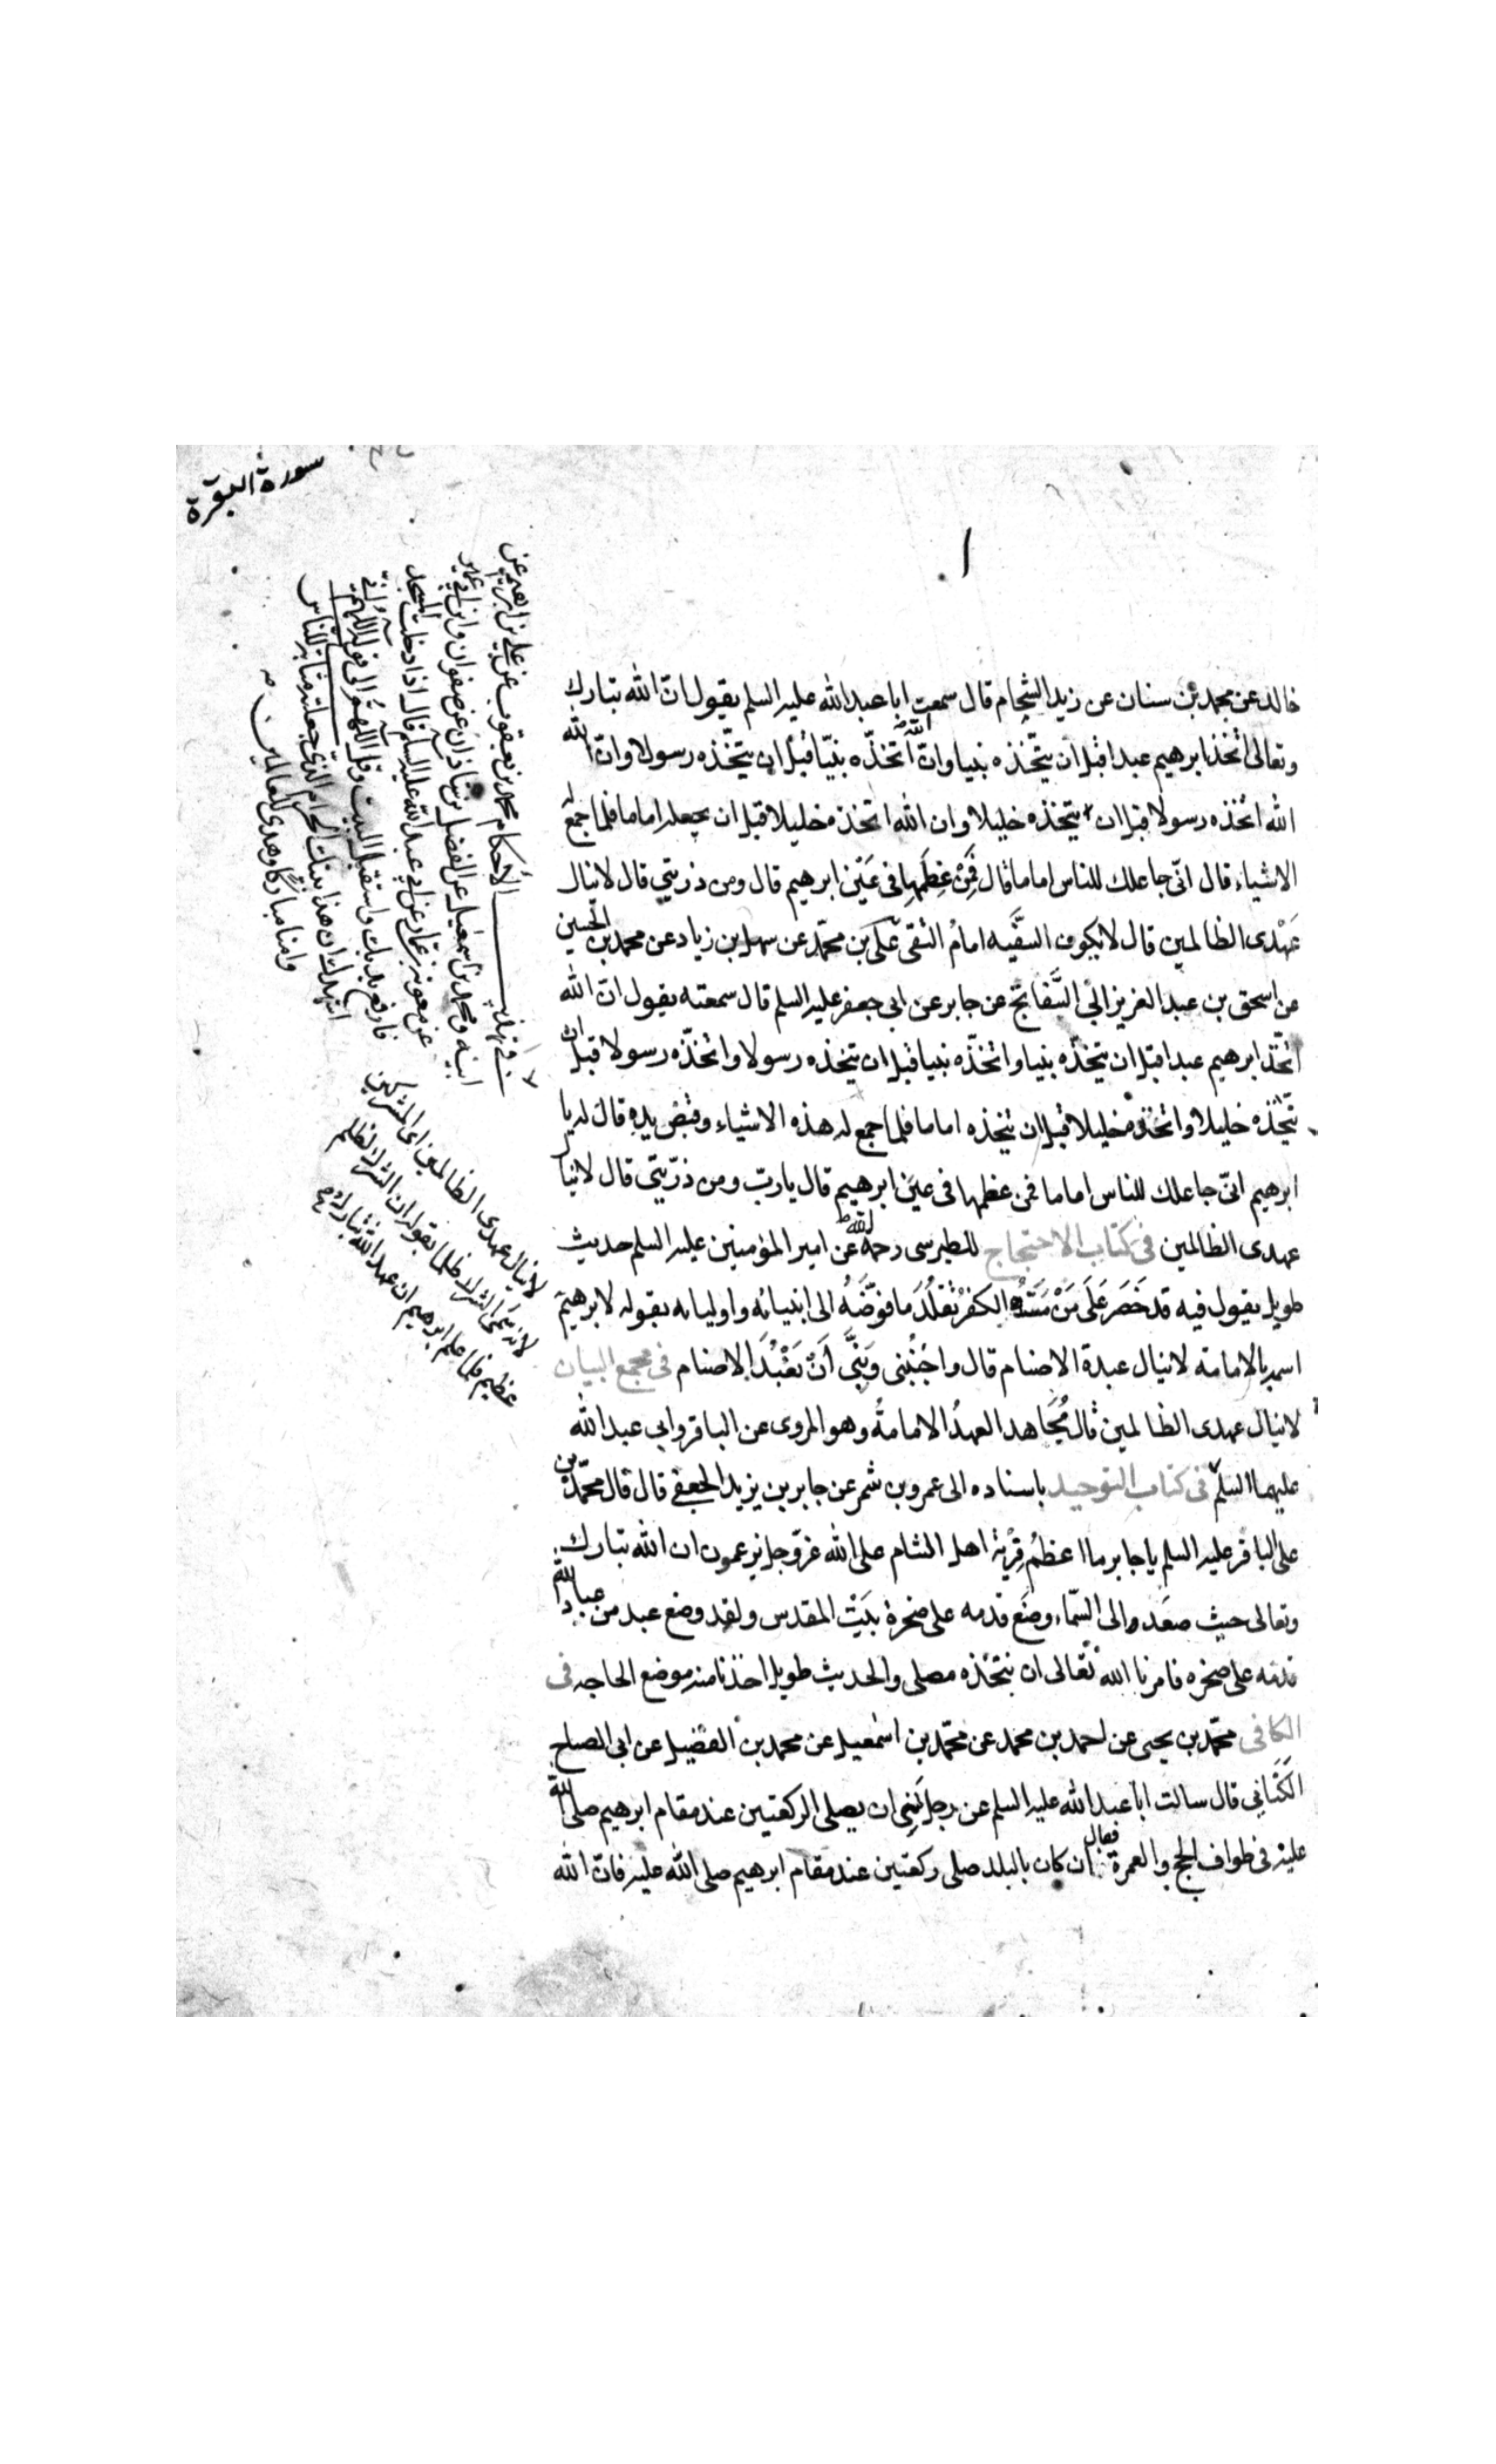 سورة البقرة
خالد عن محمد بن سنان عن زيد الشحام قال سمعت ابا عبد الله عليه السلم يقول ان الله تبارك
وتعالى اتخذ ابرهيم عبدا قبل ان يتخذه نبيا وان الله اتخذه نبيا قبل ان يتخذه رسولا وان الله
الله اتخذه رسولا قبل ان يتخذه خليلا وان الله اتخذه خليلا قبل ان يجعله اماما فلما جمع له
الاشياء قال انى جاعلك للناس اماما قال فمن عظمها فى عين ابرهيم قال ومن ذريتى قال لا ينال
عهدى الظالمين قال لا يكون السفيه امام التقى على بن محمد عن سهل بن زياد عن محمد بن الحسين
عن اسحق بن عبد العزيز ابى السفاتج عن جابر عن ابى جعفر عليه السلم قال سمعته يقول ان الله
اتخذ ابرهيم عبدا قبل ان يتخذه نبيا واتخذه نبيا قبل ان يتخذه رسولا واتخذه رسولا قبل ان
يتخذه خليلا واتخذه خليلا قبل ان يتخذه اماما فلما جمع له هذه الاشياء وقبض يده قال له يا
ابرهيم انى جاعلك للناس اماما فمن عظمها فى عين ابرهيم قال يا رب ومن ذريتى قال لا ينال
عهدى الظالمين فى كتاب الاحتجاج للطبرسى رحمه الله عن امير المؤمنين عليه السلم حديث
طويل يقول فيه قد خصر على من مسه الكفر تقلد ما فوضه الى انبيائه واوليائه بقوله لابرهيم
اسمه بالامامة لا ينال عبدة الاصنام قال واجنبنى وبنى أن نعبد الاصنام فى مجمع البيان
لا ينال عهدى الظالمين قال مجاهد العهد الامامة وهو المروى عن الباقر وابى عبد الله
عليهما السلم فى كتاب التوحيد باسناده الى عمرو بن شمر عن جابر بن يزيد الجعفى قال قال محمد بن
على الباقر عليه السلم يا جابر ما اعظم فرية اهل الشام على الله عز وجل يزعمون ان الله تبارك
وتعالى حيث صعد الى السماء وضع قدمه على صخرة بيت المقدس ولقد وضع عبد من عباد الله
قدمه على صخره فامرنا الله تعالى ان نتخذه مصلى والحديث طويل اخذنا منه موضع الحاجه فى
الكافى محمد بن يحيى عن احمد بن محمد عن محمد بن اسمعيل عن محمد بن الفضيل عن ابى الصباح
الكنانى قال سالت ابا عبد الله عليه السلم عن رجل نسى ان يصلى الركعتين عند مقام ابرهيم صلى الله
عليه فى طواف الحج والعمرة فقال ان كان بالبلد صلى ركعتين عند مقام ابرهيم صلى الله عليه فان الله
فى تهذيب الاحكام محمد بن يعقوب عن على بن ابرهيم عن
ابيه ومحمد بن اسمعيل عن الفضل بن شاذان عن صفوان وابن ابى عمير
عن معوية بن عمار عن ابى عبد الله عليه السلم قال اذا دخلت المسجد
فارفع يديك واستقبل البيت وقل اللهم الى قوله اللهم انى
اشهدك ان هذا بيتك الحرام الذى جعلته مثابة للناس
وامنا مباركا وهدى للعالمين
لا ينال عهدى الظالمين اى المشركين
لانه سمى الشرك ظلما بقوله ان الشرك لظلم
عظيم فلما علم ابرهيم ان عهد الله تبارك